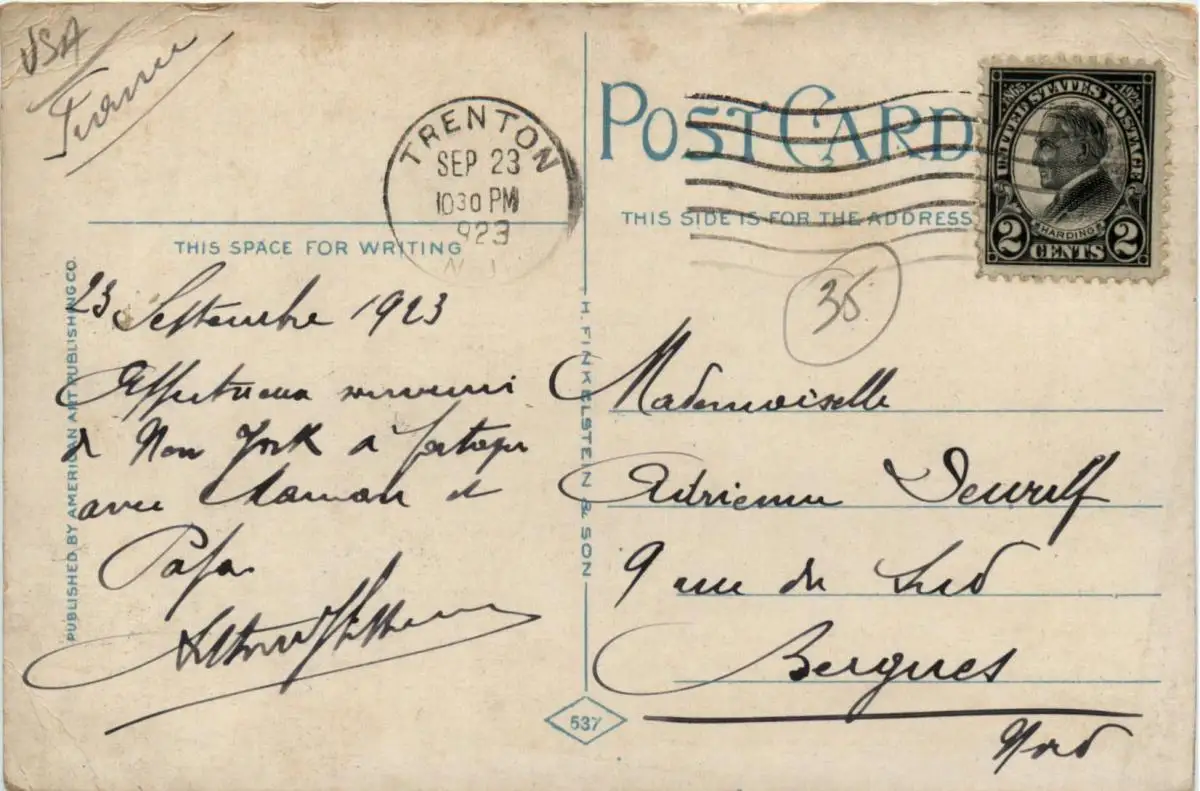 USA
France
TRENTON
SEP 23
1030 PM
1923
N.J.
POST CARD
1865 UNITED STATES POSTAGE 1923
HARDING
2 CENTS 2
THIS SIDE IS FOR THE ADDRESS
THIS SPACE FOR WRITING
35
23 Septembre 1923
Affectueux souvenir
de New York à partager
avec Maman et
Papa
Mademoiselle
Adrienne Dewulf
9 rue du Sud
Bergues
Nord
PUBLISHED BY AMERICAN ART PUBLISHING CO.
H. FINKELSTEIN & SON
537